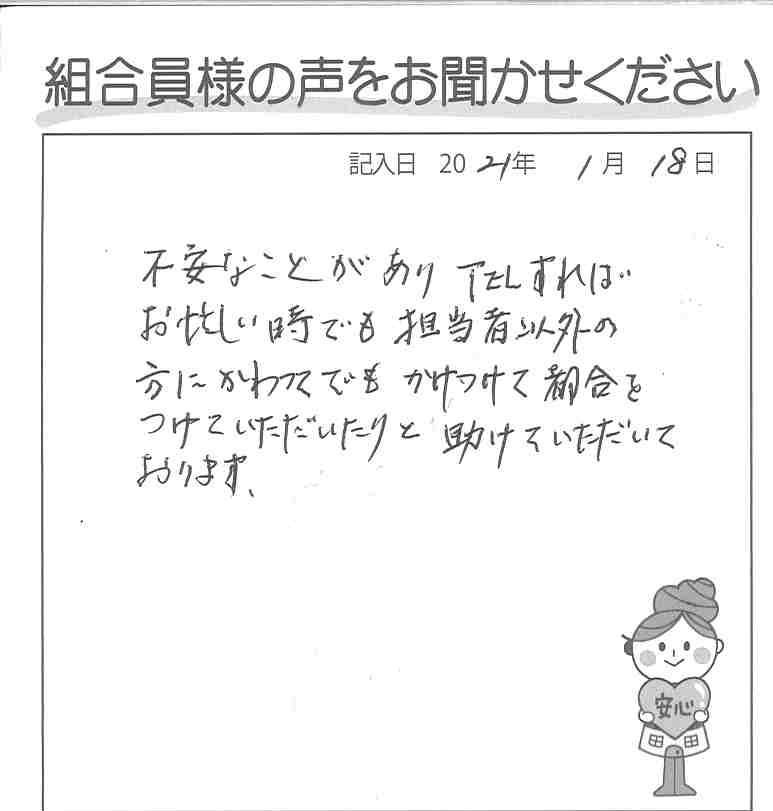 組合員様の声をお聞かせください
記入日 2021年 1月 18日
不安なことがあり TELすれば
お忙しい時でも 担当者以外の
方に かわってでも かけつけて 都合を
つけていただいたりと 助けていただいて
おります、
安心